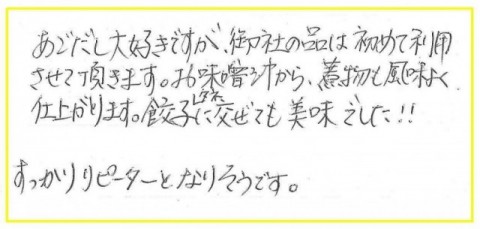 あごだし大好きですが、御社の品は初めて利用
させて頂きます。お味噌汁から、煮物も風味よく
仕上がります。餃子に交ぜても美味でした!!
すっかりリピーターとなりそうです。